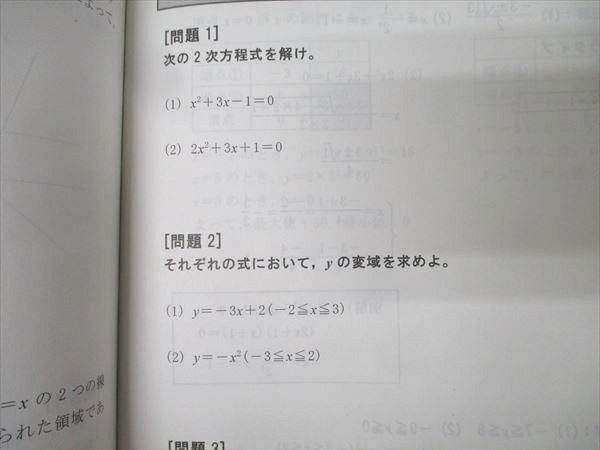 [問題 1]
次の2次方程式を解け。
(1) x²+3x−1=0
(2) 2x²+3x+1=0
[問題 2]
それぞれの式において，yの変域を求めよ。
(1) y=−3x+2(−2≦x≦3)
(2) y=−x²(−3≦x≦2)
=xの2つの線
られた領域であ
[問題 3]